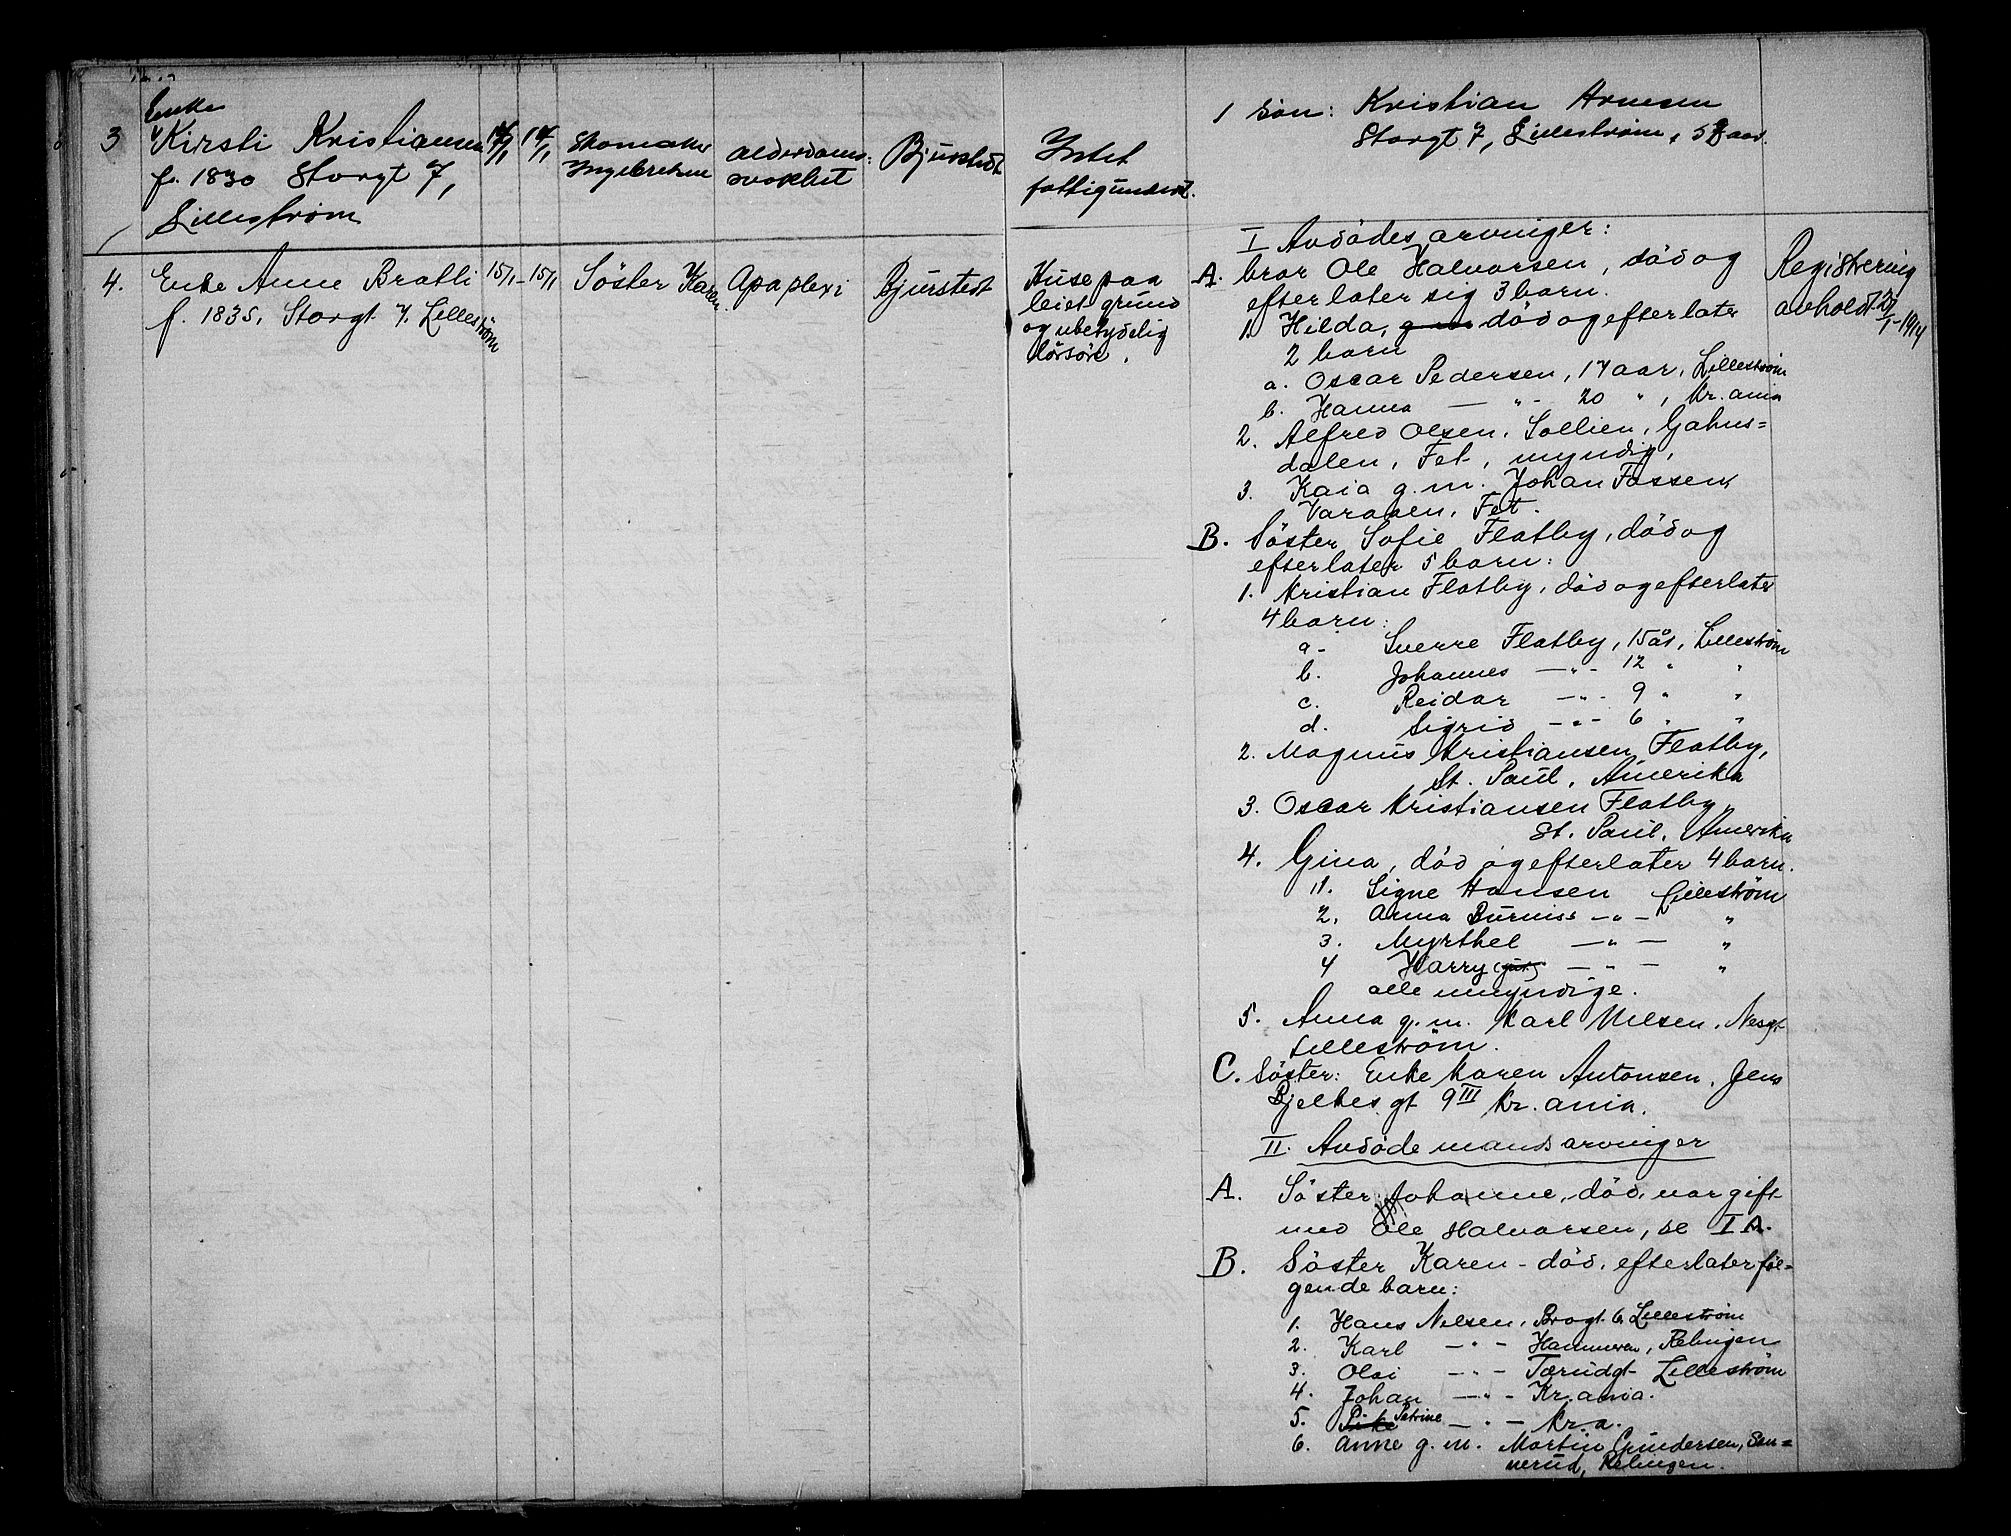 Enke
3 Kirsti Kristiansen 14/1 14/1 Skomaker alderdoms- Bjurstedt Intet 1 søn: Kristian Arnesen
f. 1830 Storgt 7, Ingebretsen svakhet fattigunderst. Storgt 7, Lillestrøm,
Lillestrøm
4. Enke Anne Bratli 15/1 - 15/1 Søster Karen Apoplexi Bjurstedt
f. 1835, Storgt 7. Lillestrøm
Huse paa
leiet grund
og ubetydelig
løsøre.
I Avdødes arvinger:
A. bror Ole Halvorsen, død og
efterlater sig 3 barn.
1. Hilda, død og efterlater
2 barn
a. Oscar Pedersen, 17 aar, Lillestrøm
b. Hanna — " - 20 ", Kr.ania
2. Alfred Olsen, Sollien, Gahus=
dalen, Fet, myndig,
3. Kaia g.m. Johan Fossen,
Varaaen, Fet.
B. Søster Sofie Flatby, død og
efterlater 5 barn:
1. Kristian Flatby, død og efterlater
4 barn:
a - Sverre Flatby, 15 år, Lillestrøm
b. Johannes — " - 12 " "
c. Reidar — " - 9 " "
d. Sigrid — " - 6 " "
2. Magnus Kristiansen Flatby,
St. Paul, Amerika
3. Oscar Kristiansen Flatby,
St. Paul, Amerika
4. Gina, død og efterlater 4 barn.
1. Signe Hansen Lillestrøm
2. Anna Burniss — " — "
3. Myrthel — " — "
4 Harry — " — "
alle umyndige.
5. Anna g.m. Karl Nilsen, Nesgt
Lillestrøm.
C. Søster: Enke Karen Antonsen, Jens
Bjelkes gt 9 III Kr.ania.
II. Avdøde mands arvinger
A. Søster Johanne, død, var gift
med Ole Halvorsen, se I A.
B. Søster Karen - død, efterlater føl=
gende barn:
1. Hans Nilsen, Brogt. 6, Lillestrøm
2. Karl — " - Hammeren, Relingen
3. Olai — " - Tærudgt Lillestrøm
4. Johan — " - Kr.ania.
5. Petrine — " — Kr.a.
6. Anne g.m. Martin Gundersen, Sau=
nerud, Relingen.
Registrering
avholdt 1914